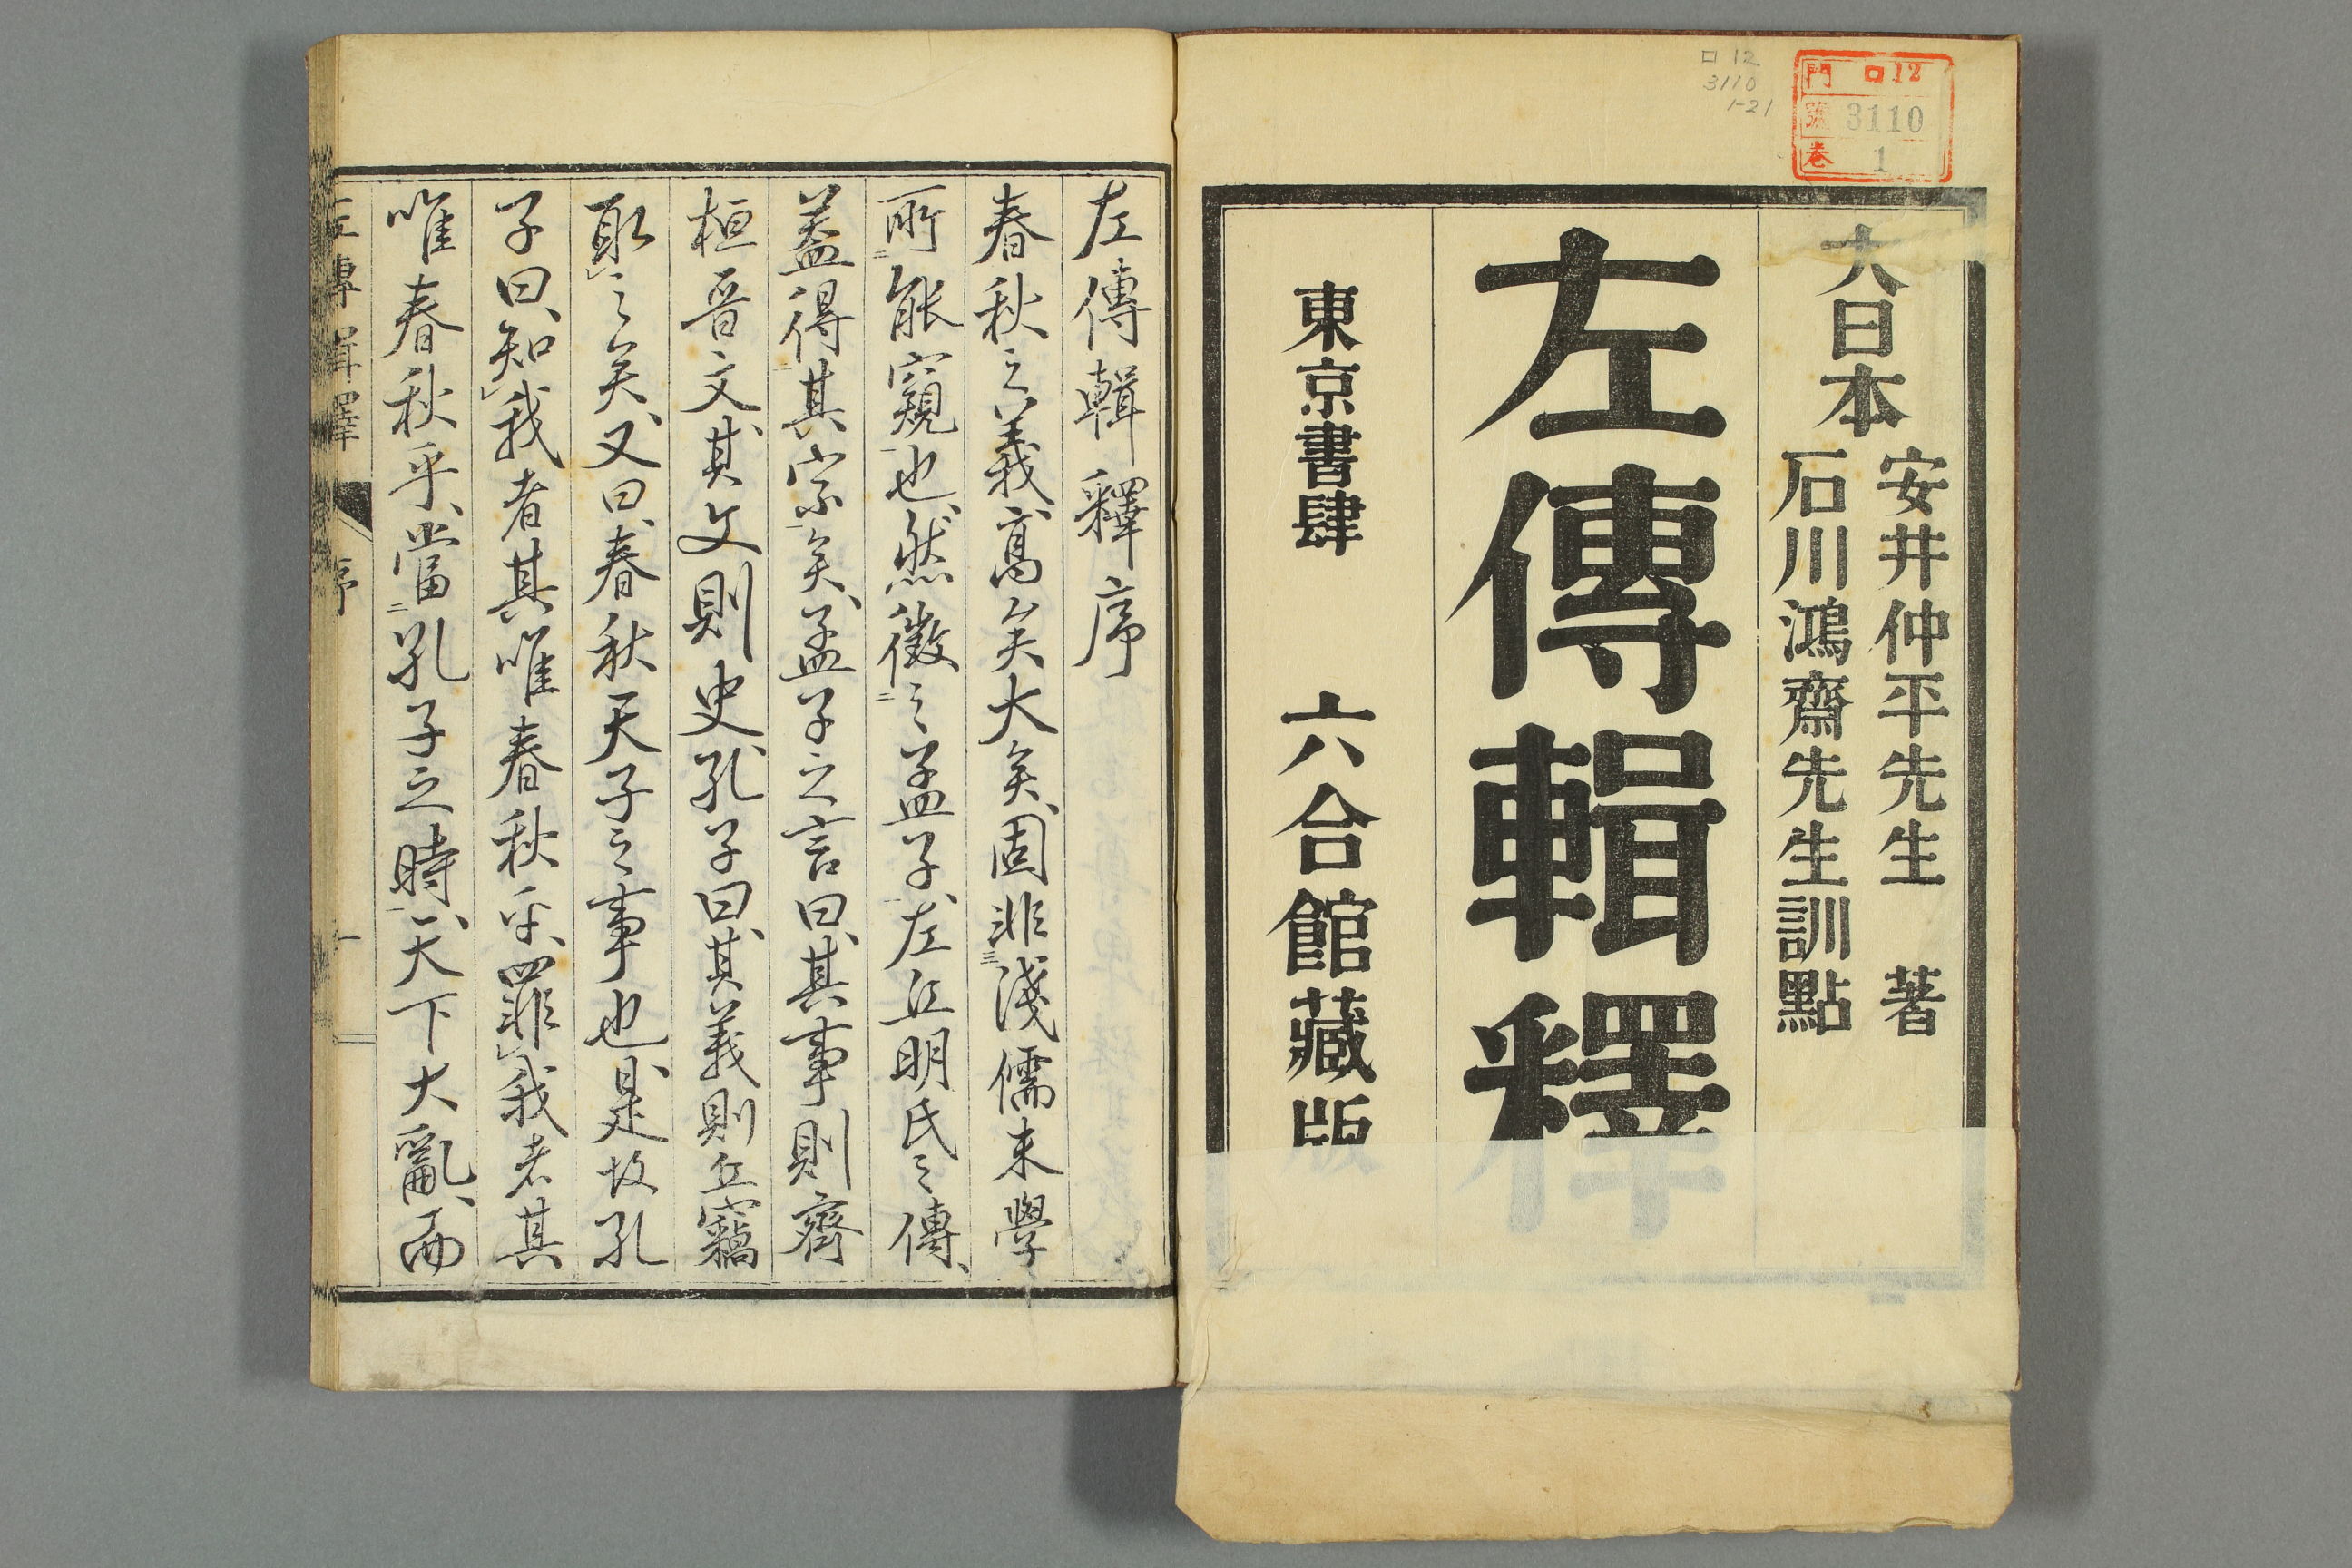 ロ 12
3110
1-21
門 ロ12
號 3110
卷 1
大日本
安井仲平先生 著
石川鴻齋先生訓點
左傳輯釋
東京書肆 六合館藏版
左傳輯釋序
春秋之義高矣大矣、固非三淺儒末學
所二能窺一也、然徵二之孟子一、左丘明氏之傳、
蓋得二其宗一矣、孟子之言曰、其事則齊
桓晉文、其文則史、孔子曰、其義則丘竊
取之矣、又曰、春秋天子之事也、是故孔
子曰、知我者其唯春秋乎、罪我者其
唯春秋乎、當二孔子之時一、天下大亂、而
左傳輯釋 序 一